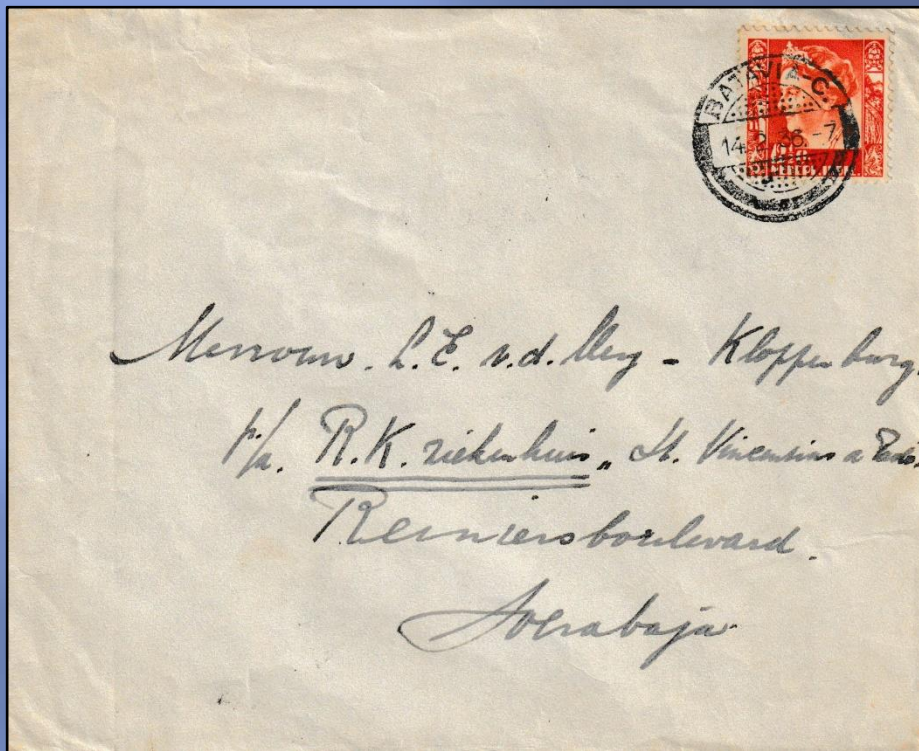 BATAVIA-C.
14.2.36.-7
Mevrouw. L.E. v.d. Berg - Kloppenburg.
p/a. R.K. ziekenhuis „ St. Vincentius a
Reiniersboulevard.
Soerabaja